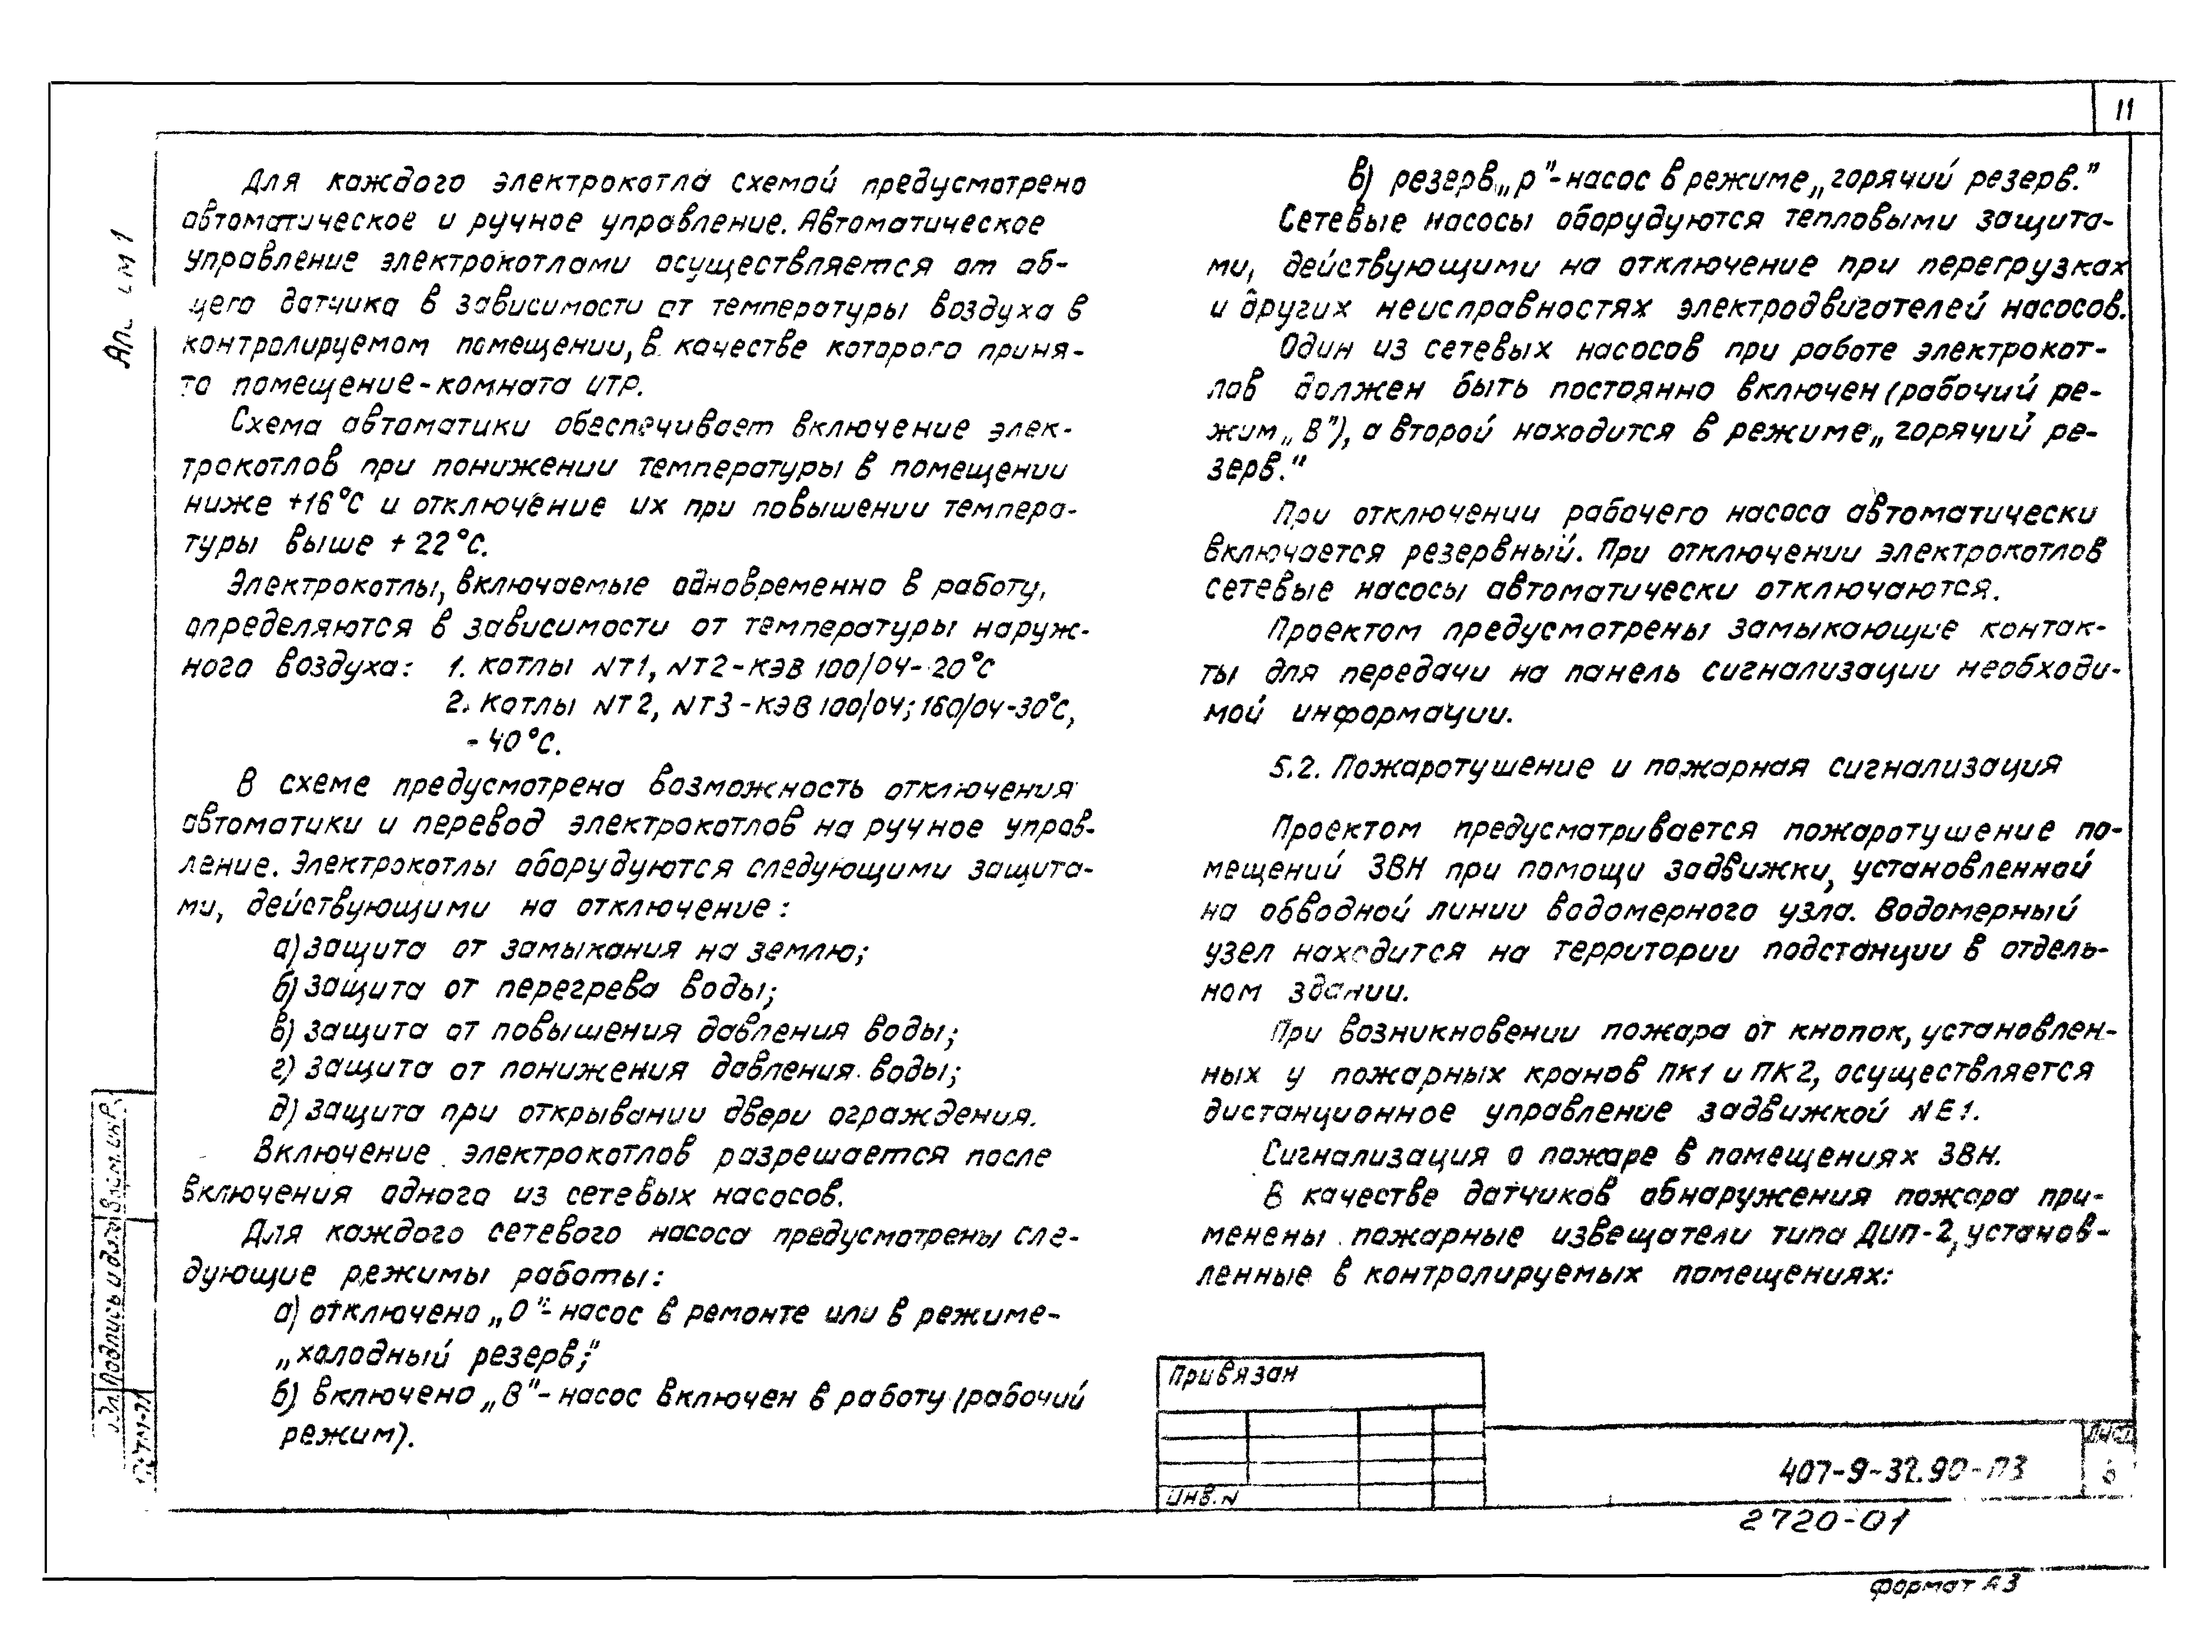 11
Для каждого электрокотла схемой предусмотрено
автоматическое и ручное управление. Автоматическое
управление электрокотлами осуществляется от об-
щего датчика в зависимости от температуры воздуха в
контролируемом помещении, в качестве которого приня-
то помещение-комната ИТР.
Схема автоматики обеспечивает включение элек-
трокотлов при понижении температуры в помещении
ниже +16°С и отключение их при повышении темпера-
туры выше +22°С.
Электрокотлы, включаемые одновременно в работу,
определяются в зависимости от температуры наруж-
ного воздуха: 1. котлы NT1, NT2-КЭВ 100/04-20°С
2. Котлы NT2, NT3-КЭВ 100/04; 160/04-30°С,
-40°С.
В схеме предусмотрена возможность отключения
автоматики и перевод электрокотлов на ручное управ-
ление. Электрокотлы оборудуются следующими защита-
ми, действующими на отключение:
а) защита от замыкания на землю;
б) защита от перегрева воды;
в) защита от повышения давления воды;
г) защита от понижения давления воды;
д) защита при открывании двери ограждения.
Включение электрокотлов разрешается после
включения одного из сетевых насосов.
Для каждого сетевого насоса предусмотрены сле-
дующие режимы работы:
а) отключено „О"- насос в ремонте или в режиме-
„холодный резерв;"
б) включено „В"- насос включен в работу (рабочий
режим).
в) резерв „р"-насос в режиме „горячий резерв."
Сетевые насосы оборудуются тепловыми защита-
ми, действующими на отключение при перегрузках
и других неисправностях электродвигателей насосов.
Один из сетевых насосов при работе электрокот-
лов должен быть постоянно включен (рабочий ре-
жим „В"), а второй находится в режиме „горячий ре-
зерв."
При отключении рабочего насоса автоматически
включается резервный. При отключении электрокотлов
сетевые насосы автоматически отключаются.
Проектом предусмотрены замыкающие контак-
ты для передачи на панель сигнализации необходи-
мой информации.
5.2. Пожаротушение и пожарная сигнализация
Проектом предусматривается пожаротушение по-
мещений ЗВН при помощи задвижки, установленной
на обводной линии водомерного узла. Водомерный
узел находится на территории подстанции в отдель-
ном здании.
При возникновении пожара от кнопок, установлен-
ных у пожарных кранов ПК1 и ПК2, осуществляется
дистанционное управление задвижкой NE1.
Сигнализация о пожаре в помещениях ЗВН.
В качестве датчиков обнаружения пожара при-
менены пожарные извещатели типа ДИП-2, установ-
ленные в контролируемых помещениях:
Привязан
Инв. N
407-9-32.90-ПЗ
Лист
2720-01
Формат А3
Подпись и дата
Взам. инв.